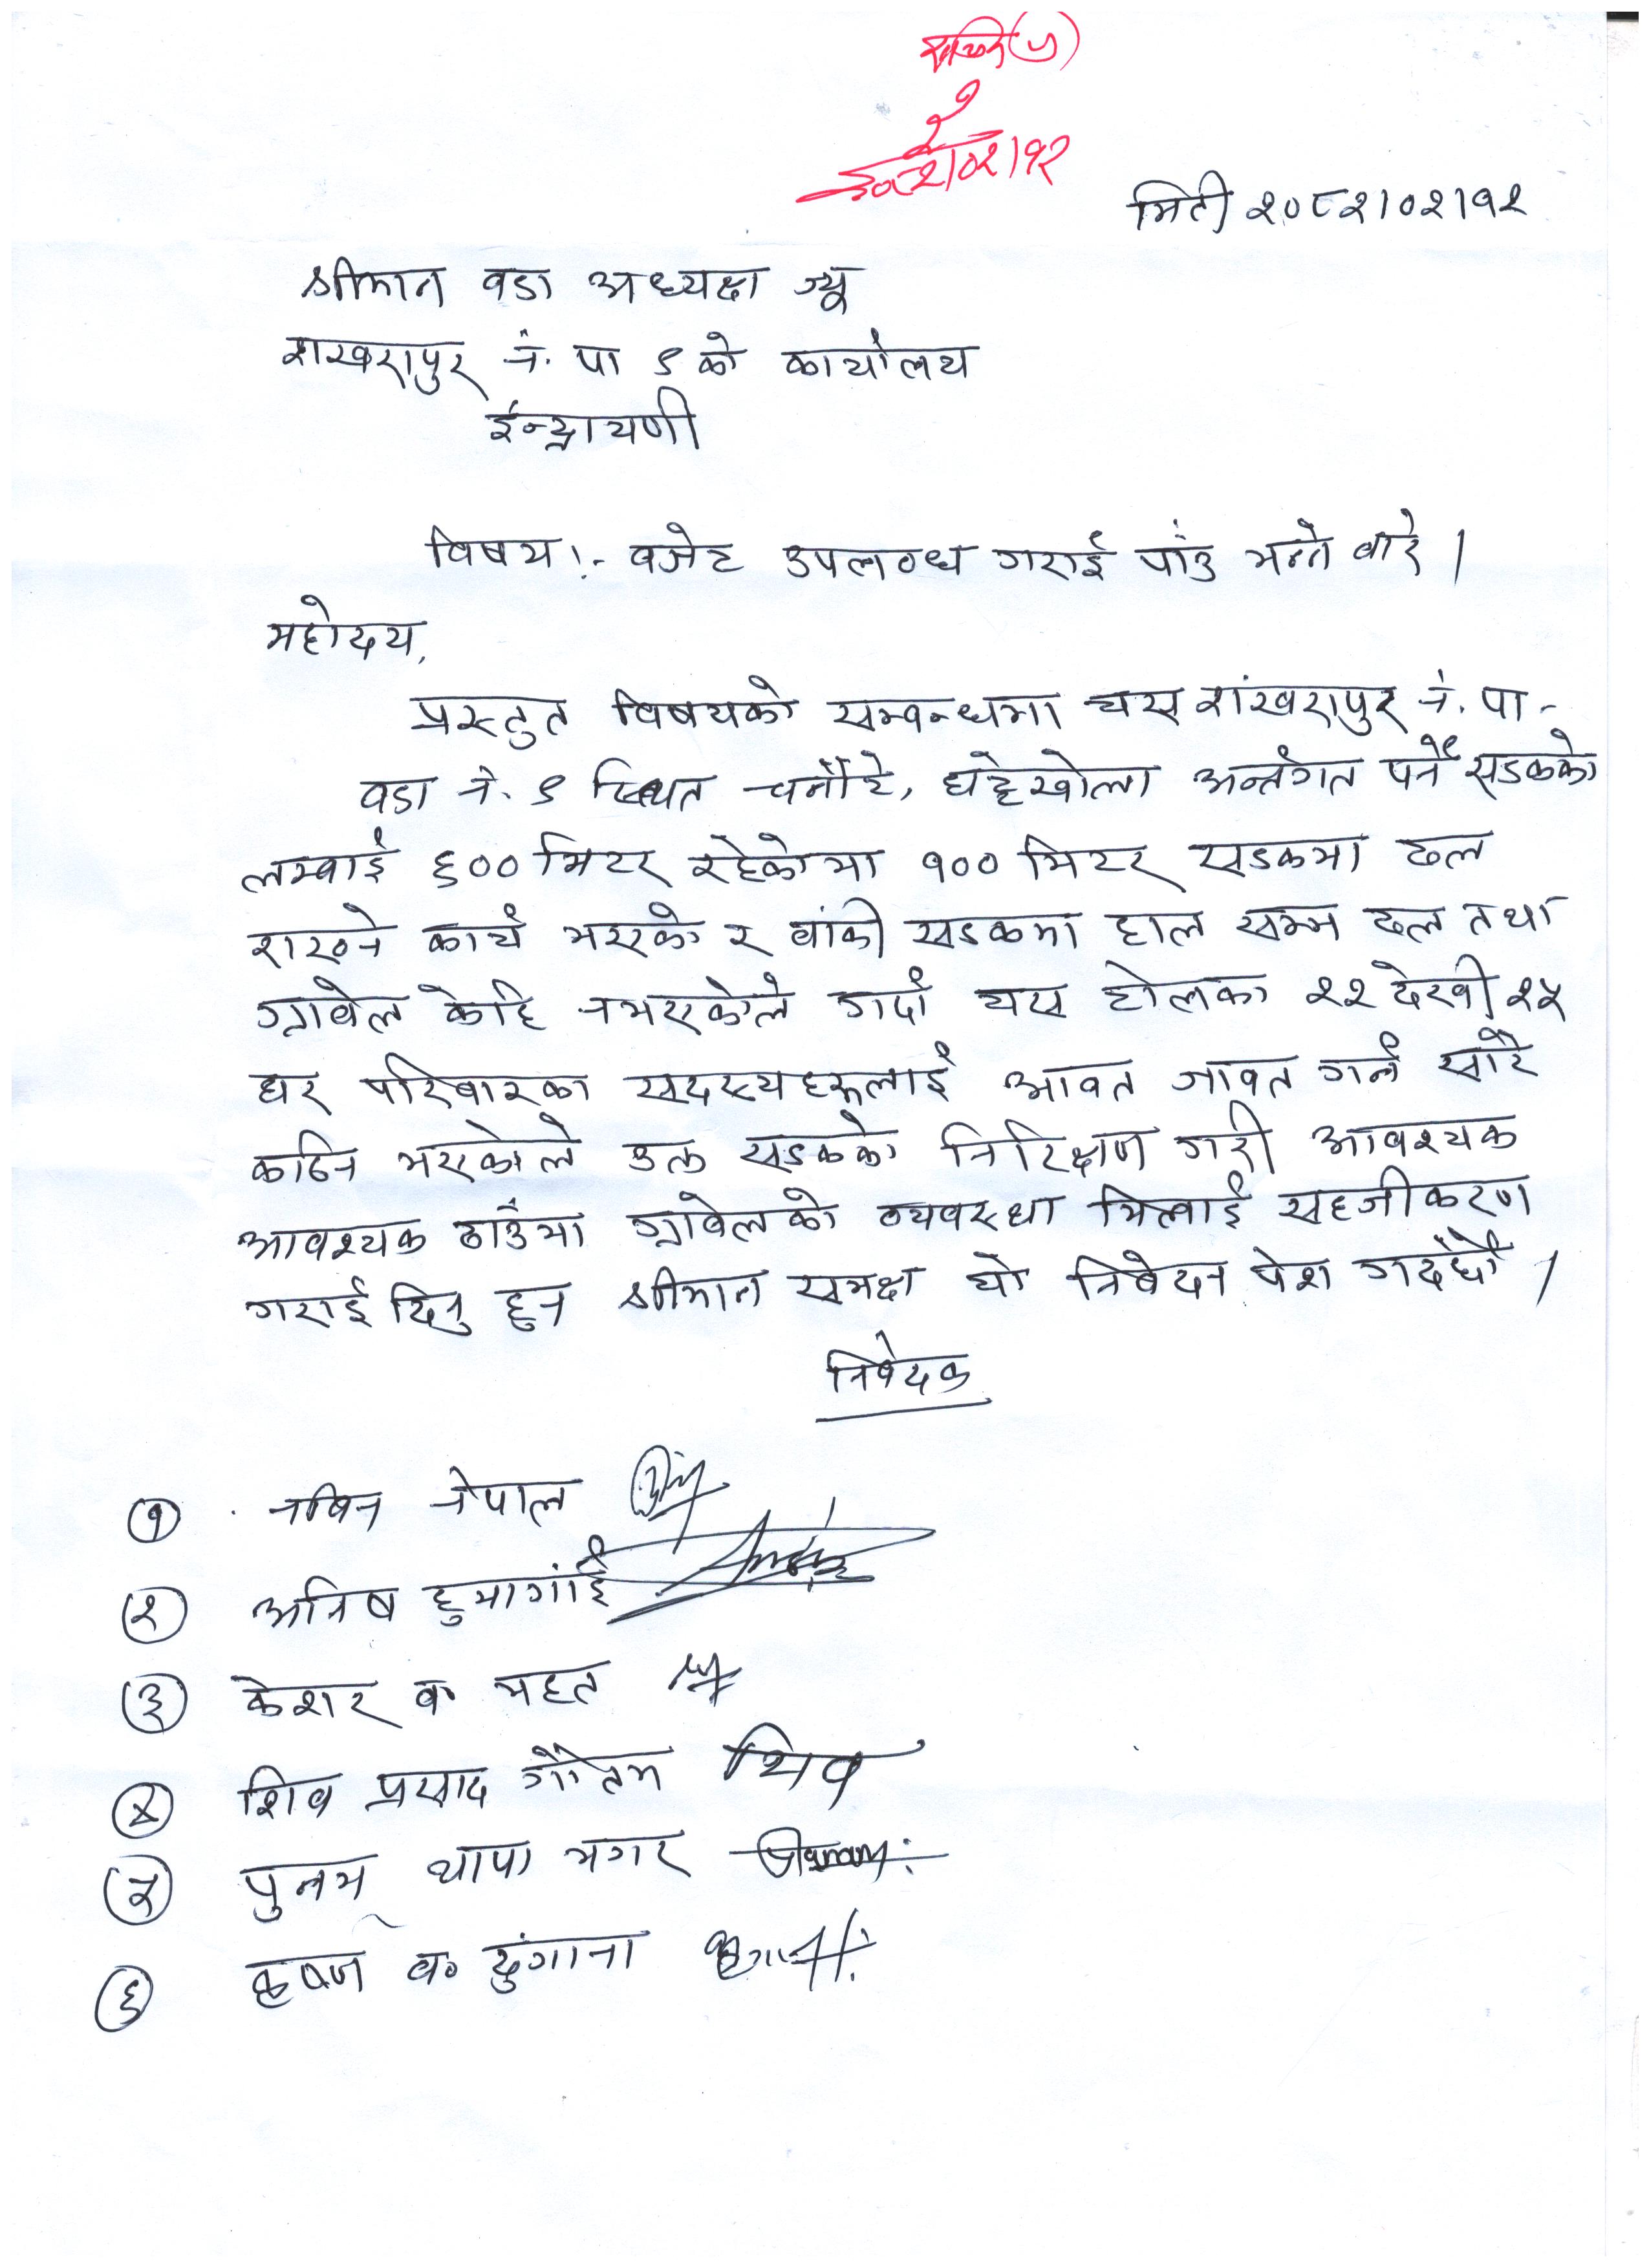 २०८२।०२।१२
मिती २०८२।०२।१२
श्रीमान वडा अध्यक्ष ज्यू
शंखरापुर न. पा ९ को कार्यालय
ईन्द्रायणी
विषय :- वजेट उपलव्ध गराई पांउ भन्ने वारे ।
महोदय,
प्रस्तुत विषयको सम्वन्धमा यस शंखरापुर न. पा.
वडा न. ९ स्थित घट्टेखोला अर्न्तगत पर्ने सडकको
लम्वाई ६०० मिटर रहेकोमा १०० मिटर सडकमा ढल
राख्ने कार्य भएको र वांकी सडकमा हाल सम्म ढल तथा
ग्रावेल केहि नभएकोले गर्दा यस टोलका २२ देखी २५
घर परिवारका सदस्यहरुलाई आवत जावत गर्न सारै
कठिन भएकोले उक्त सडकको निरिक्षण गरी आवश्यक
आवश्यक ठाउँमा ग्रावेलको व्यवस्था मिलाई सहजीकरण
गराई दिनु हुन श्रीमान समक्ष यो निवेदन पेश गर्दछौं ।
निवेदक
१ नविन नेपाल
२ अनिष हुमागांई
३ केशर व० महत
४ शिव प्रसाद गौतम शिव
५ पुनम थापा मगर
६ कृष्ण व० ढुंगाना